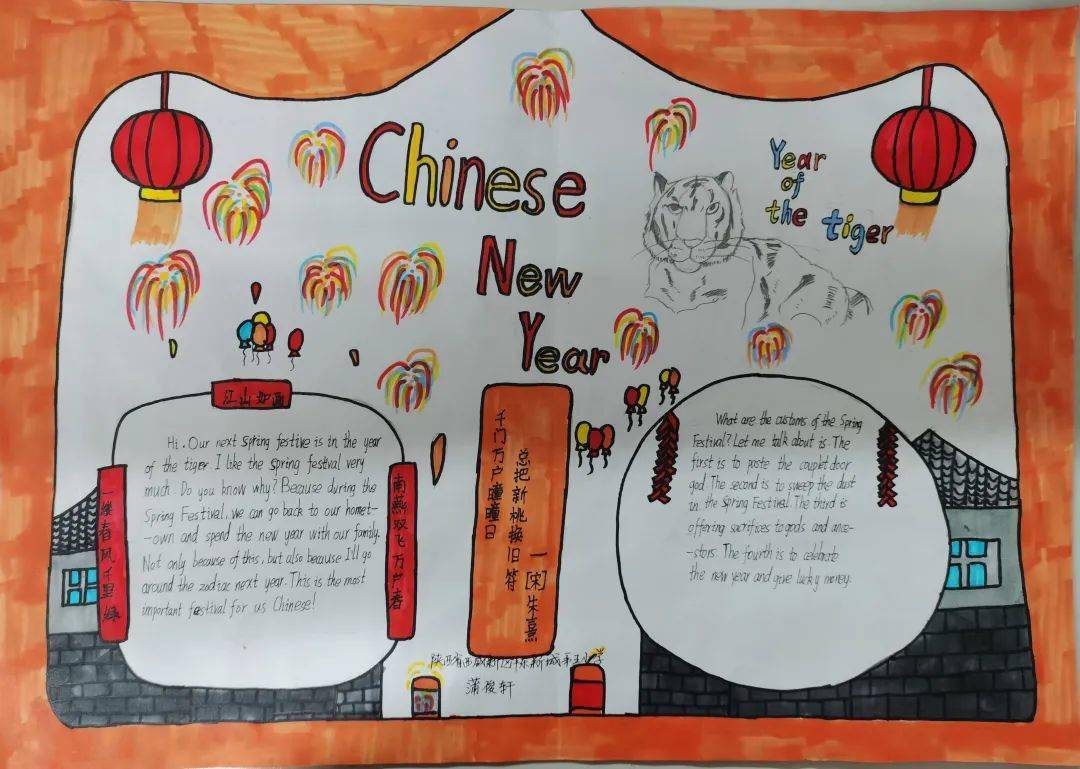 Chinese
New
Year
Year
of
the tiger
江山如画
一缕春风千里绿
南燕双飞万户春
Hi. Our next spring festive is in the year
of the tiger. I like the spring festval very
much. Do you know why? Because during the
Spring Festival, we can go back to our homet-
-own and spend the new year with our family.
Not only because of this, but also because I'll go
around the zodiac next year. This is the most
important festival for us Chinese!
千门万户曈曈日
总把新桃换旧符
一[宋]朱熹
What are the customs of the Spring
Festival? Let me talk about is. The
first is to paste the couplet door
god. The second is to sweep the dust
in the Spring Festival. The third is
offering sacrifices to gods and ance-
-stors. The fourth is to celebrate
the new year and give lucky money.
陕西省西咸新区沣东新城第五小学
蒲俊轩